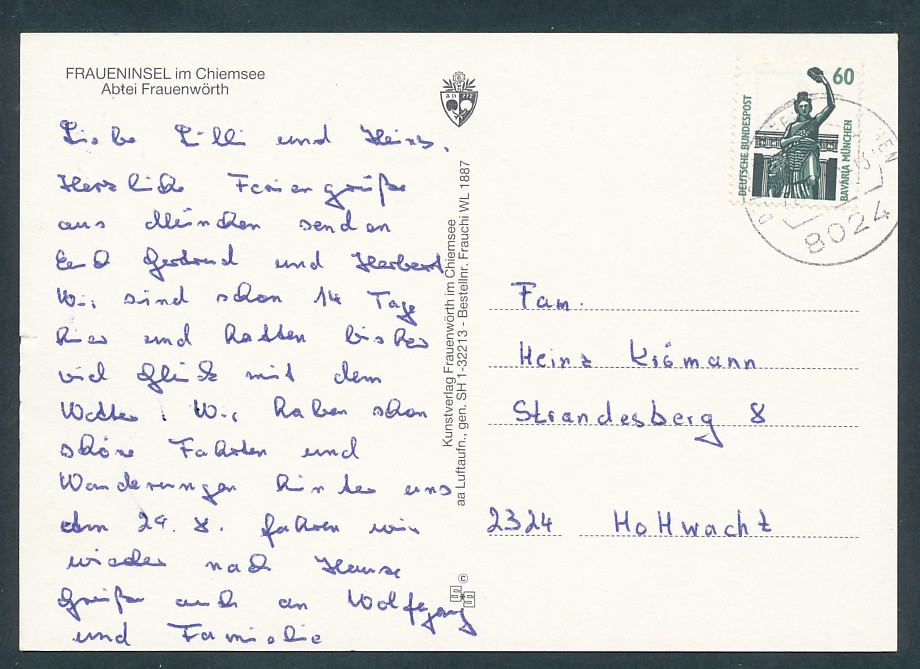 FRAUENINSEL im Chiemsee
Abtei Frauenwörth
Liebe Lilli und Heinz,
Herzliche Feriengrüße
aus München senden
Euch Gertrud und Herbert
Wir sind schon 14 Tage
hier und hatten bisher
viel Glück mit dem
Wetter. Wir haben schon
schöne Fahrten und
Wanderungen hinter uns
dem 29. 8. fahren wir
wieder nach Hause
Grüße auch an Wolfgang
und Familie
Kunstverlag Frauenwörth im Chiemsee
aa Luftaufn., gen. SH 1-32213 - Bestellnr. Frauchi WL 1887
©
60
DEUTSCHE BUNDESPOST
BAVARIA MÜNCHEN
8024
Fam.
Heinz
Strandesberg 8
2324 Hohwacht